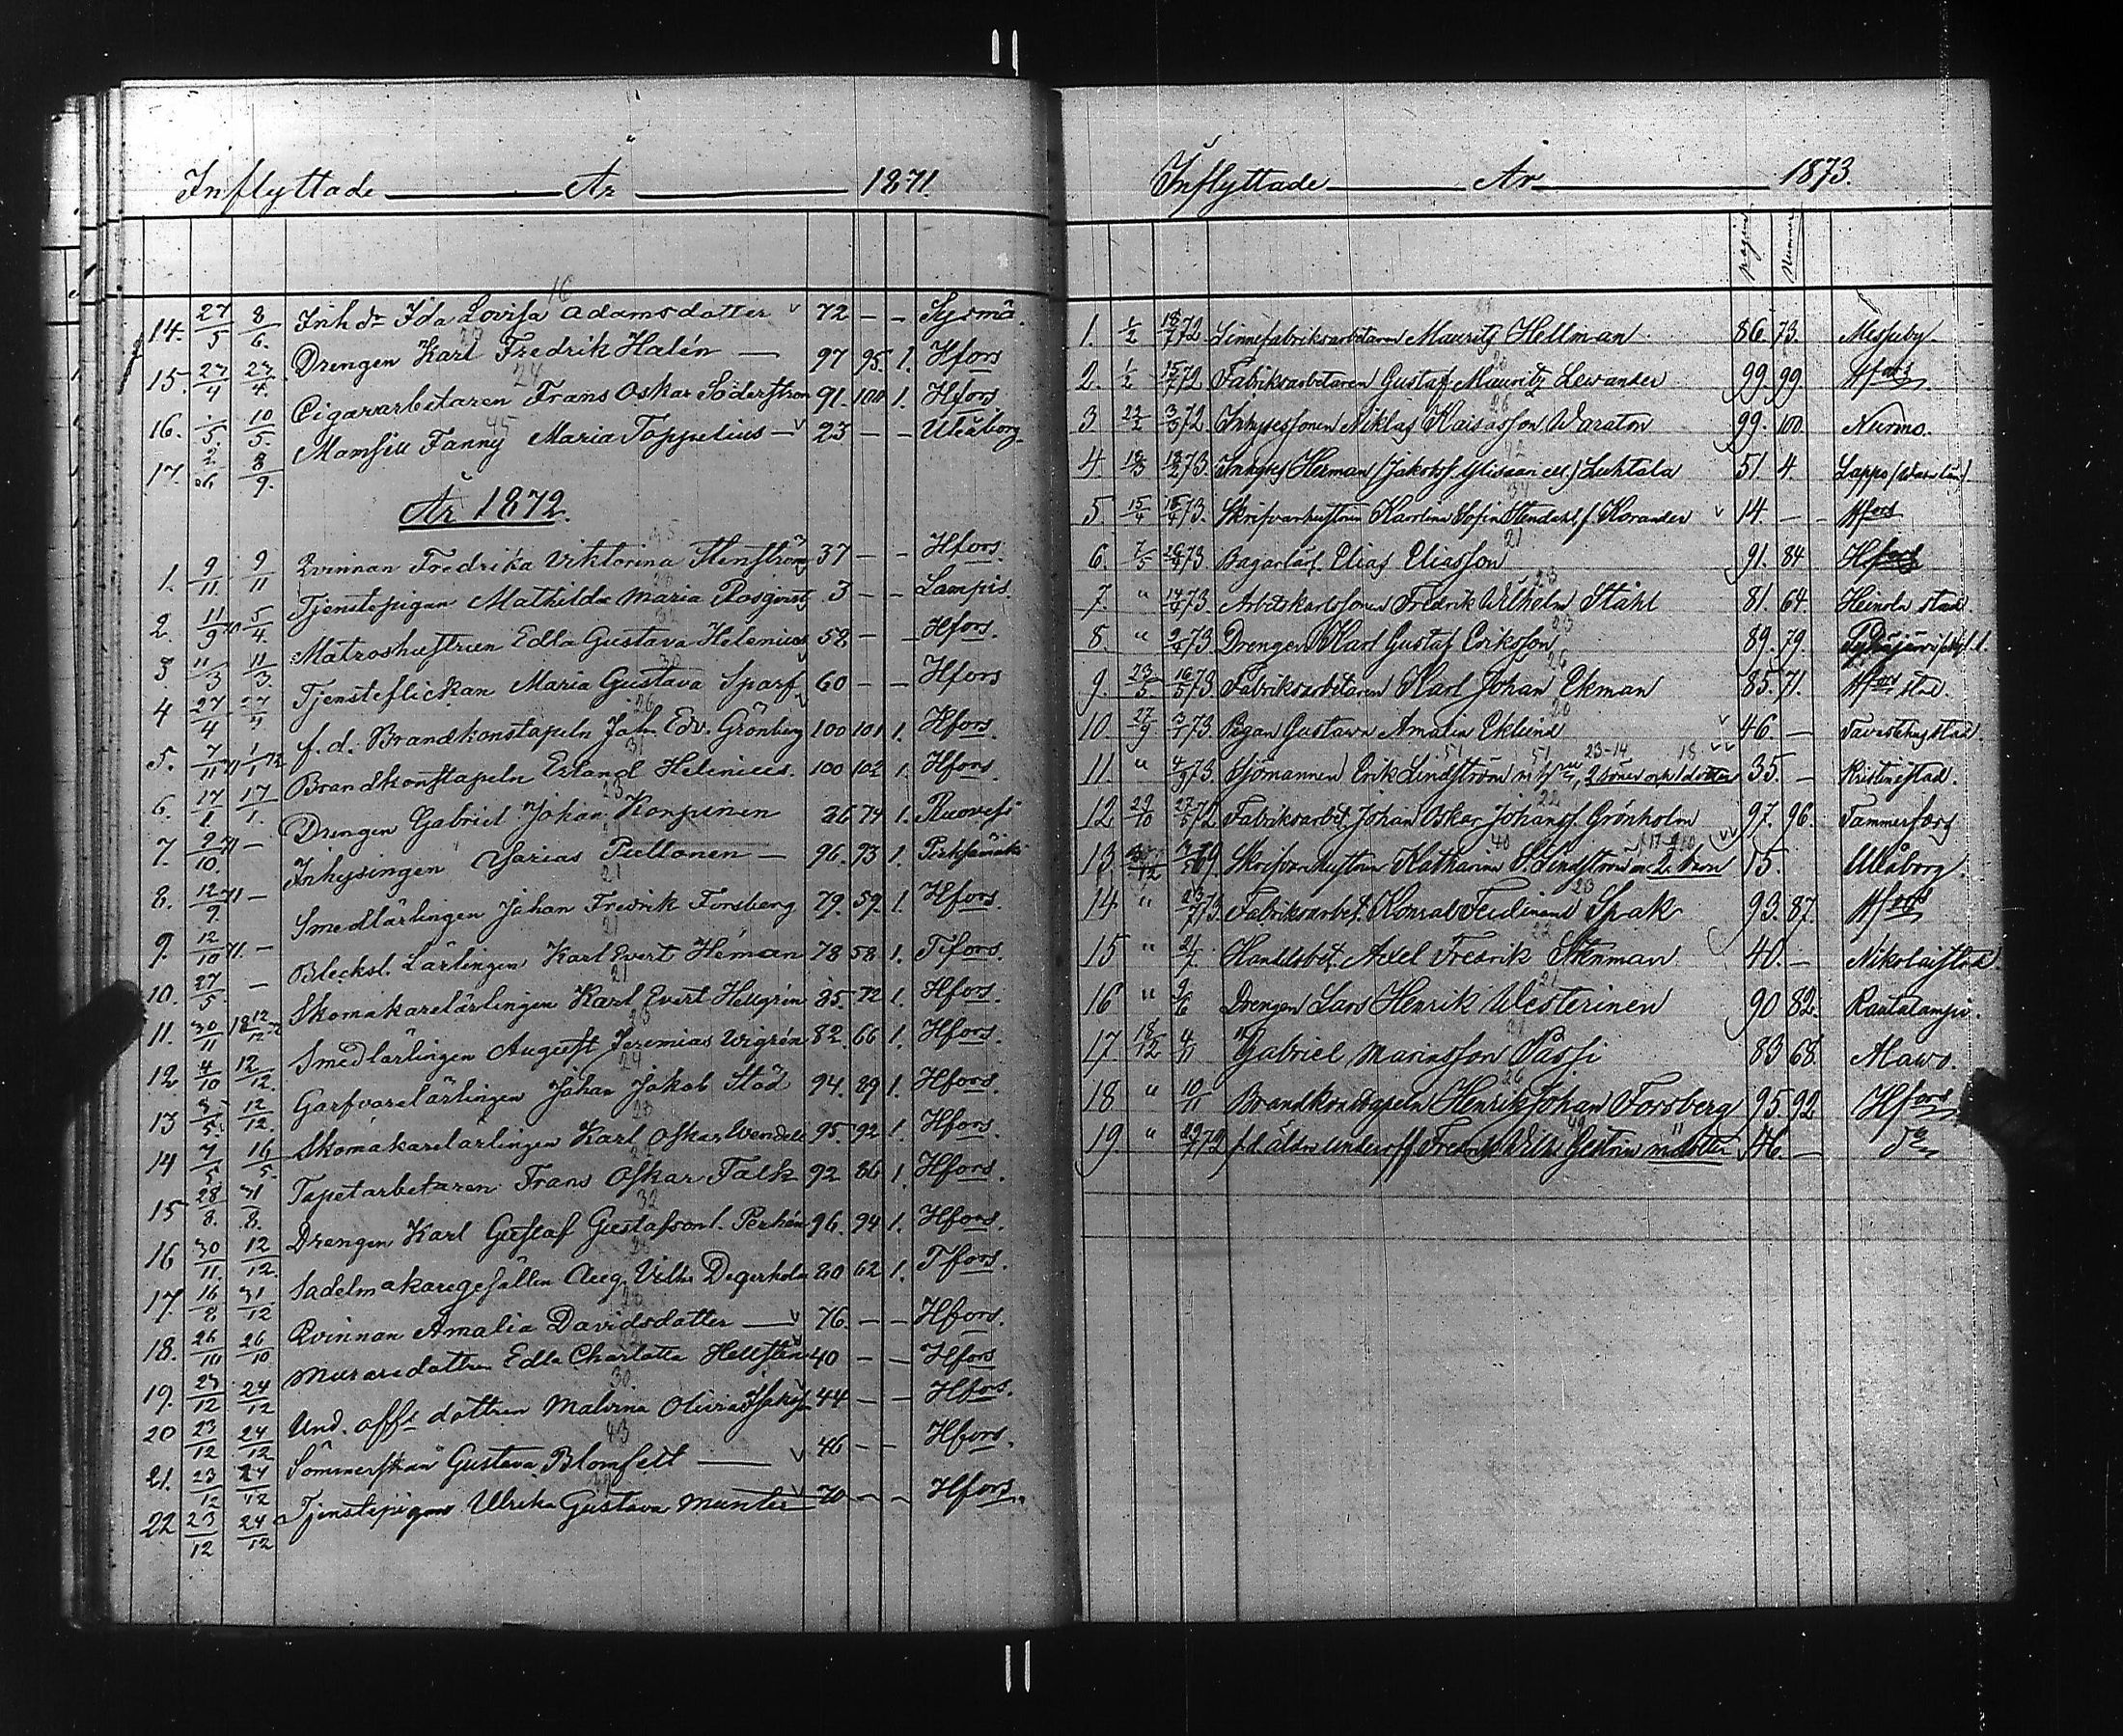 Inflyttade År 1871.
14. 27/5 8/6. Inh dr Ida Lovisa Adamsdotter 16 v 72 – – Sysmä.
15. 27/4 27/4. Drengen Karl Fredrik Halén — 23 97 95. 1. Hfors
16. 10/5. Cigararbetaren Frans Oskar Söderström 24 91. 100 1. Hfors
17. 2/6 8/9. Mamsell Fanny Maria Toppelius — 45 v 23 – – Uleåborg.
År 1872.
1. 9/11 9/11 Qvinnan Fredrika Viktorina Stenström v 37 – – Hfors.
2. 11/9 71 5/4. Tjenstepigan Mathilda Maria 3 – – Lampis.
3 11/3 11/3. Matroshustrun Edla Gustava Helenius 32 58 – – Hfors.
4 27/4 27/4 Tjensteflickan Maria Gustava Sparf v 60 – – Hfors
5. 7/11 71 1/1 72 f. d. Brandkonstapeln Joh. Edv. Grönberg 26 100 101 1. Hfors.
6. 17/1. 17/1. Brandkonstapeln Erland Helenius. 31 100 102 1. Hfors.
7. 2/10. 71 – Drengen Gabriel Johan Korpinen 23 26 74 1. Ruovesi
8. 12/9. 71 – Inhysingen Zarias Pullonen — 96. 93 1. Pieksämäki
9. 12/10 71. – Smedlärlingen Johan Fredrik Forsberg 21 79. 59. 1. Hfors.
10. 27/5. – Blecksl. Lärlingen Karl Evert Héman 21 78 58 1. Tfors.
11. 30/11 12/12 Skomakarelärlingen Karl Evert Hellgrén 21 85. 72 1. Hfors.
12. 4/10 12/12. Smedlärlingen August Jeremias Wigrén 23 82. 66 1. Hfors.
13 3/5. 12/12. Garfvarelärlingen Johan Jakob Stöd 24 94. 89 1. Hfors.
14 7/5 16/5. Skomakarelärlingen Karl Oskar Wendell 23 95. 92 1. Hfors.
15 28/8. 31/8. Tapetarbetaren Frans Oskar Falk 92 86 1. Hfors.
16 30/11. 12/12. Drengen Karl Gustaf Gustafson l. Perhén 32 96. 94 1. Hfors.
17. 16/8 31/12 Sadelmakaregesällen Aug. Vilh. Degerholm 80 62 1. Tfors.
18. 26/10 26/10 Qvinnan Amalia Davidsdotter — v 76. – – Hfors.
19. 23/12 24/12 Muraredottren Edla Charlotta Hellsten v 40 – – Hfors
20 23/12 24/12 Und. offs dottren Malvina Olivia 30. v 44 – – Hfors.
21. 23/12 24/12 Sömmerskan Gustava Blomfelt — 43 v 46 – – Hfors.
22 23/12 24/12 Tjenstepigan Ulrika Gustava Munter v 70 – – Hfors.
Inflyttade År 1873.
pagina Nummer
1. 1/2 18/7 72 Linnefabriksarbetaren Mauritz Hellman 86. 73. Messuby.
2. 1/2 15/7 72 Fabriksarbetaren Gustaf Mauritz Lewander 99. 99 Hfors
3 22/2 3/3 72. Inhysessonen Niklas Kaisasson Waraton 26 99. 100 Nurmo.
4. 12/3 13/2 73. Inhyses Herman (Jakobss. Ylisaari ell.) Luhtala 51. 4. Lappo (Wasa län).
5. 15/4 15/4 73. Skrifvarhustrun Karolina Sofia Stendahl f. Korander 34 v 14. – – Hfors
6. 7/5 73. Bagarlärl. Elias Eliasson 21 91. 84 Hfors
7. " 14/4 73. Arbetskarlssonen Fredrik Wilhelm Ståhl 23 81. 64. Heinola stad.
8. " 2/4 73. Drengen Karl Gustaf Eriksson 23 89. 79.
9. 23/5. 16/5 73. Fabriksarbetaren Karl Johan Ekman 26 85. 71. Hfors stad.
10. 27/9 3/7 73. Pigan Gustava Amalia Eklund 20 v 46 – Tavastehus stad.
11. " 4/9 73. Sjömannen Erik Lindström 51 m. hustru 51, 2 söner 23-14 och 1 dotter 18 v v 35. – Kristinestad.
12 29/10 27/5 72 Fabriksarbet. Johan Oskar Johanss. Grönholm 22 97. 96. Tammerfors
13. 30/12 69 Skrifvarehustrun Katharina S. Lindström 40 m. 2 barn v v 15. Uleåborg.
14 " 23/7 73. Fabriksarbet. Konrad Ferdinand Spak 23 93. 87. Hfors
15 " 21/7. Handelsbet. Axel Fredrik Stenman 22 40. – Nikolaistad.
16 " 9/6 Drengen Lars Henrik Westerinen 21 90 82. Rautalampi.
17 18/12 4/11 " Gabriel Mariasson Passi 21 83 68. Alavo.
18 " 10/11 Brandkonstapeln Henrik Johan Forsberg 26 95. 92 Hfors
19. " 29/7 72 f.d. äldre underoff. Fredrik Vilh. Gestrin m. dotter 46. – do